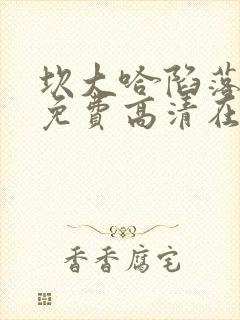 坎大哈陷落
免费高清在
香香腐宅